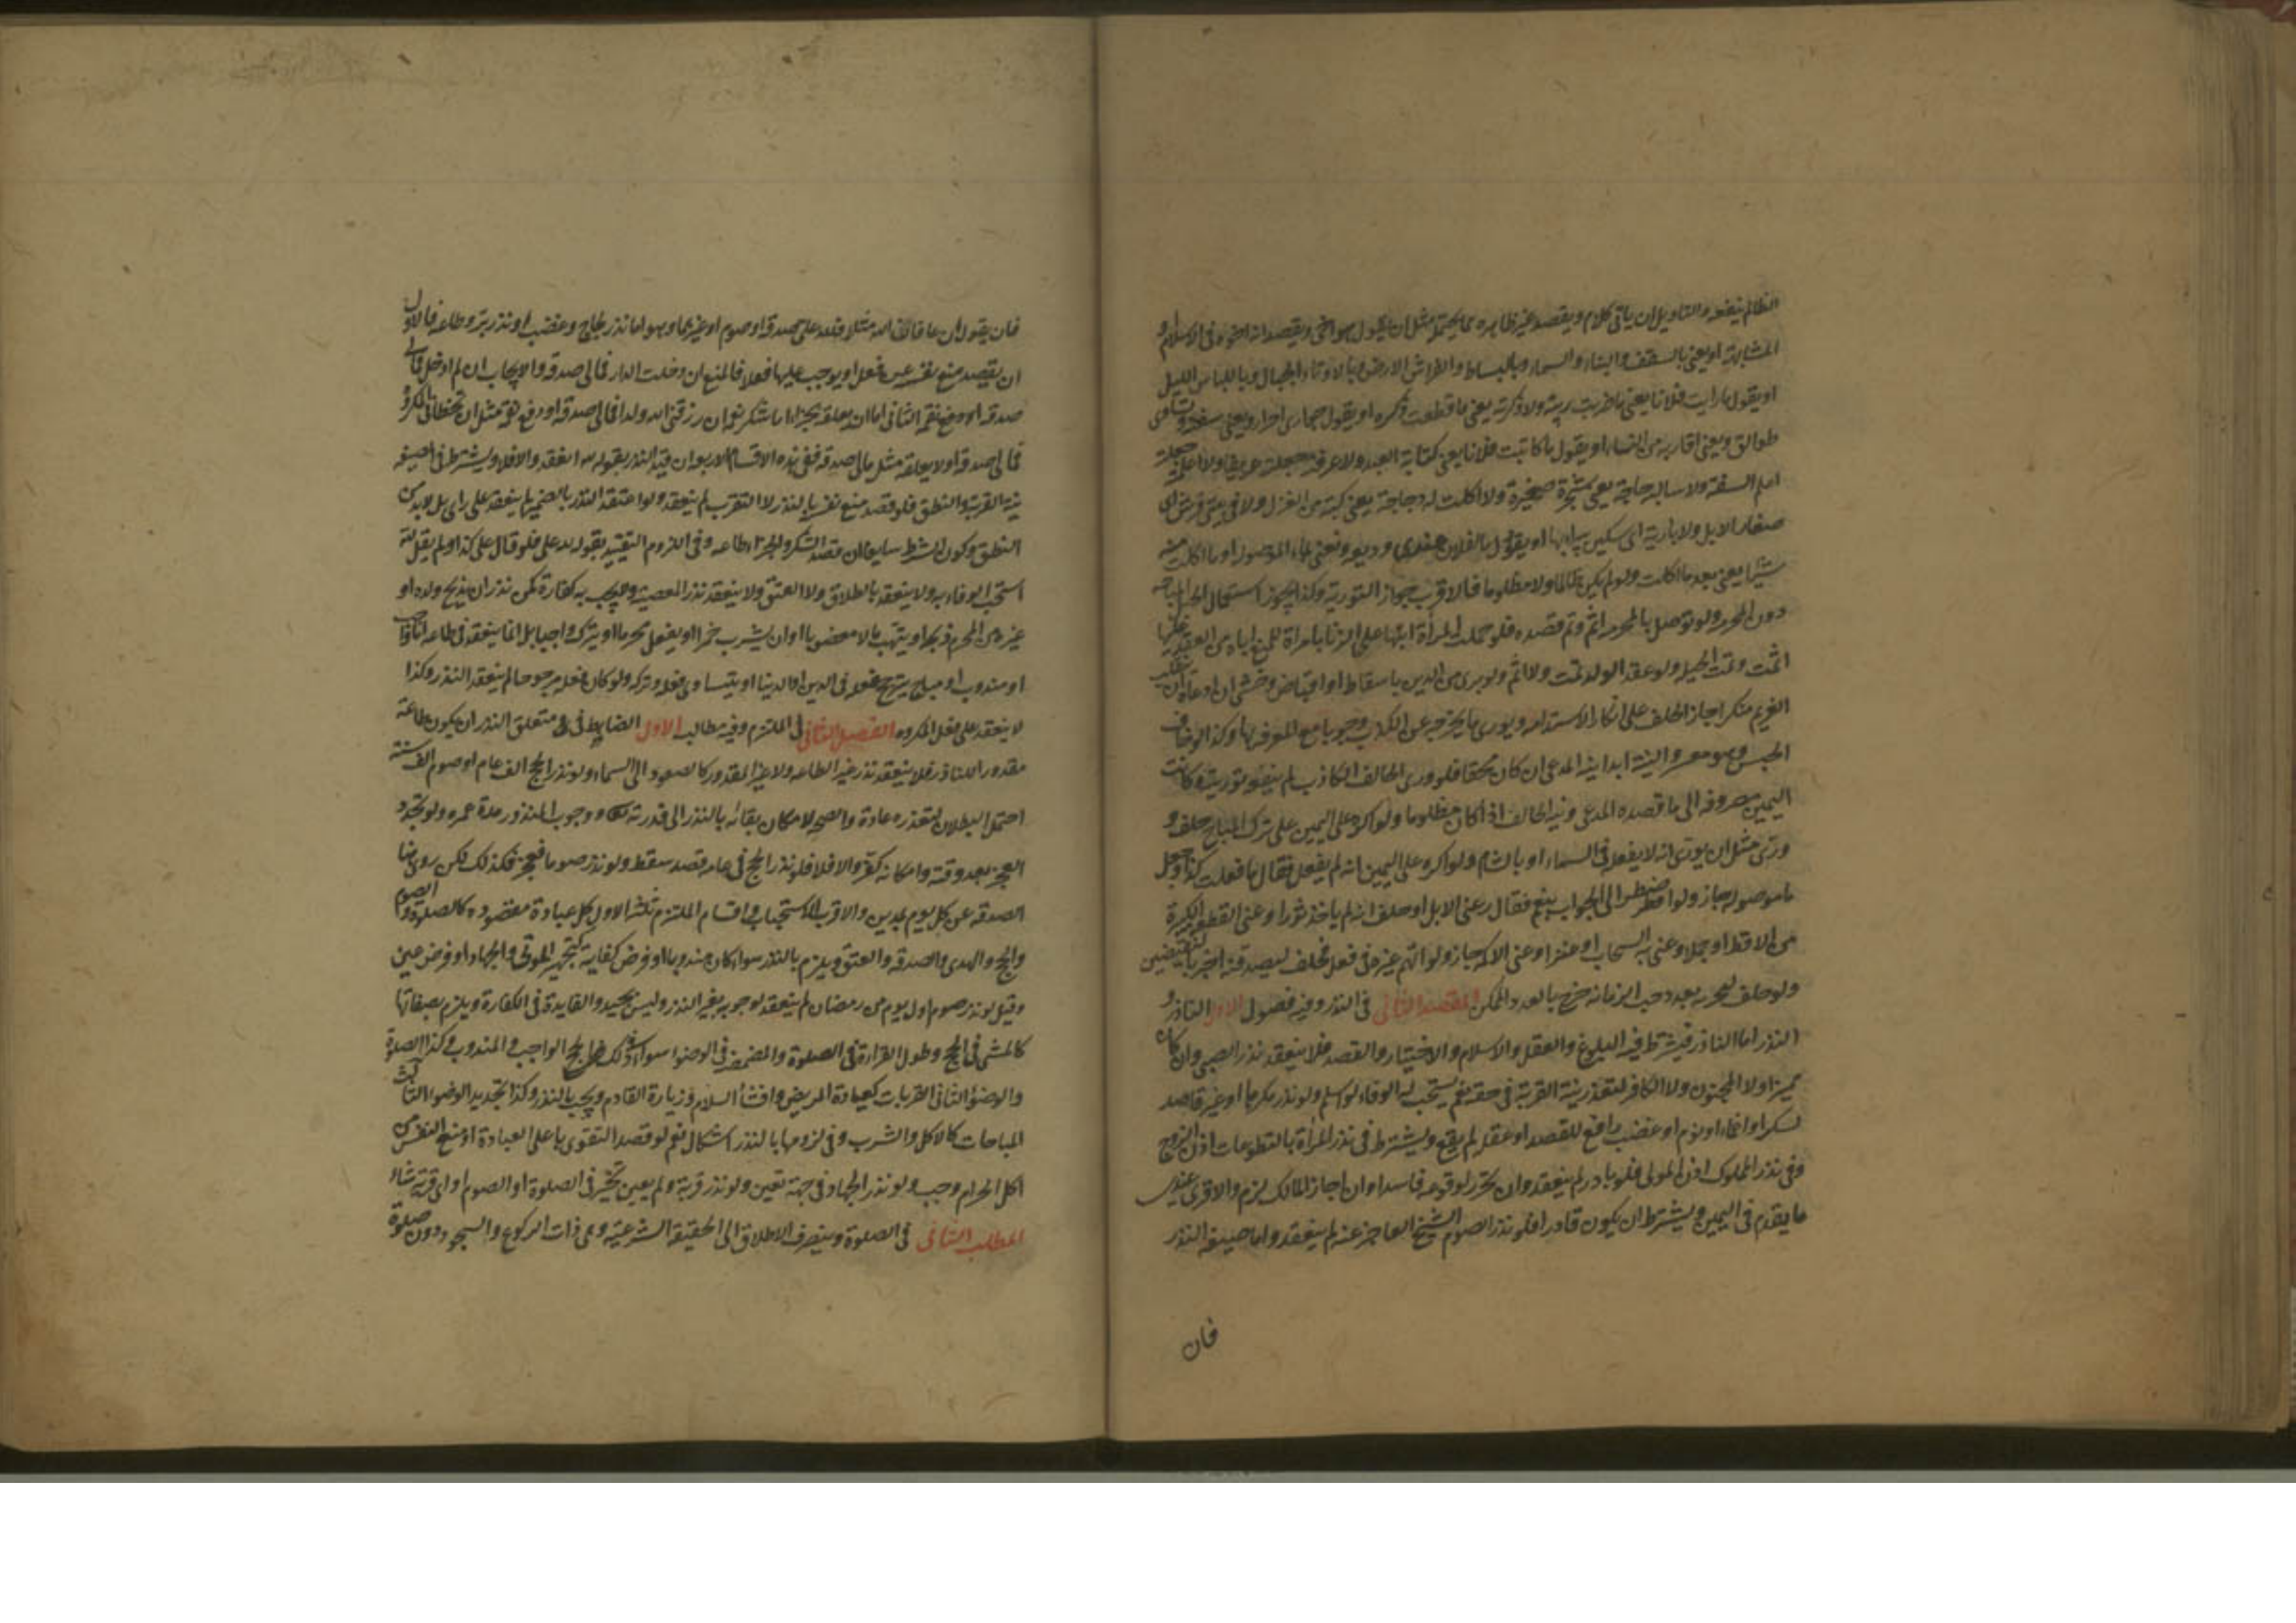 الظالم ينفعه والتاويل ان ياتى بكلام ويقصد غير ظاهره مما يحتمله مثل ان يقول هو اخى ويقصد انه اخوه فى الاسلام او
المشابهة او يعنى بالسقف والبناء والسماء وبالبساط والفراش الارض وبالاوتاد الجبال وباللباس الليل
او يقول ما رايت فلانا يعنى ما ضربت ريته ولا ذكرته يعنى ما قطعت ذكره او يقول جوارى احرار ويعنى سفنه ونسائى
طوالق ويعنى اقاربه من النساء او يقول ما كاتبت فلانا يعنى كتابة العبد ولا عرفته جعلته عريفا ولا اعلمته جعلته
اعلم الشفة ولا سالته حاجة يعنى شجرة صغيرة ولا اكلت له دجاجة يعنى كبة من الغزل ولا فى بيتى فرش اى
صغار الابل ولا بارية اى سكين يبرى بها او يقول ما لفلان عندى وديعة ويعنى بما الموصولة او ما اكلت منه
شيئا يعنى بعد ما اكلت ولو لم يكن ظالما ولا مظلوما فالاقرب جواز التورية وكذا يجوز استعمال الحيل المباحة
دون المحرمة ولو توصل بالمحرمة اثم وتم قصده فلو حملت المرأة ابنها على الزنا بامراة لتمنع اباه من العقد عليها
اثمت وتمت الحيلة ولو عقد الولد تمت ولا اثم ولو برى من الدين باسقاط او اقباض وخشى ان ادعاه ان ينقلب
الغريم منكرا جاز الحلف على انكار الاستدانة ويورى ما يخرجه عن الكذب وجوبا مع المعرفة بها وكذا لو خاف
الحبس وهو معسر والنية ابدا نية المدعى ان كان محقا فلو ورى الحالف الكاذب لم ينفعه توريته وكانت
اليمين مصروفة الى ما قصده المدعى ونية الحالف اذا كان مظلوما ولو اكره على اليمين على ترك المباح حلف و
ورى مثل ان يورى انه لا يفعله فى السماء او بالشام ولو اكره على اليمين انه لم يفعل فقال ما فعلت كذا وجعل
ما موصولة جاز ولو اضطر الى الجواب بنعم فقال وعنى الابل او حلف انه لم ياخذ ثورا وعنى القطعة الكبيرة
من الاقط او جملا وعنى به السحاب او عنزا وعنى الاكمة جاز ولو اتهم غيره فى فعل فحلف ليصدقنه اخبر بالنقيضين
ولو حلف ليخبرنه بعدد حب الرمانة خرج بالعدد الممكن المقصد الثانى فى النذر وفيه فصول الاول الناذر و
النذر اما الناذر فيشترط فيه البلوغ والعقل والاسلام والاختيار والقصد فلا ينعقد نذر الصبى وان كان
مميزا ولا المجنون ولا الكافر لتعذر نية القربة فى حقه نعم يستحب له الوفاء لو اسلم ولو نذر مكرها او غير قاصد
لسكر او اغماء او نوم او غضب رافع للقصد او عقد لم يقع ويشترط فى نذر المرأة بالتطوعات اذن الزوج
وفى نذر المملوك اذن المولى فلو بادر لم ينعقد وان تحرر لوقوعه فاسدا وان اجاز المالك لزم والاقرب عندى
ما يقدم فى اليمين ويشترط ان يكون قادرا فلو نذر الصوم الشيخ العاجز عنه لم ينعقد واما صيغة النذر
فان
فان يقول ان عافانى الله مثلا فلله على صدقة او صوم او غيرهما وهو اما نذر لجاج وغضب او نذر بر وطاعة فالاول
ان يقصد منع نفسه عن فعل او يوجب عليها فعلا فالمنع ان دخلت الدار فمالى صدقة والايجاب ان لم ادخل فمالى
صدقة الثانى اما ان يعلقه بجزاء اما شكر نعمة ان رزقنى الله ولدا فمالى صدقة او دفع نقمة مثل ان تخطانى المكروه
فمالى صدقة او لا يعلقه مثل مالى صدقة ففى هذه الاقسام الاربعة ان قيد النذر بقوله لله انعقد والا فلا ويشترط فى الصيغة
نية القربة والنطق فلو قصد منع نفسه بالنذر لا التقرب لم ينعقد ولو اعتقد النذر بالضمير لم ينعقد على راى بل لا بد من
النطق وكون الشرط سايغا ان قصد الشكر والجزاء طاعة وفى اللزوم التقييد بقوله لله على فلو قال على كذا ولم يقل لله
استحب الوفاء به ولا ينعقد بالطلاق ولا العتق ولا ينعقد نذر المعصية ولا يجب به كفارة كمن نذر ان يذبح ولده او
غيره من المحرم ذبحه او ينهب مالا معصوما او ان يشرب خمرا او يفعل محرما او يترك واجبا بل انما ينعقد فى طاعة اما واجب
او مندوب او مباح يترجح فعله فى الدين او الدنيا او يتساوى فعله وتركه ولو كان فعله مرجوحا لم ينعقد النذر وكذا
لا ينعقد على فعل المكروه الفصل الثانى فى الملتزم وفيه مطالب الاول الضابط فى متعلق النذر ان يكون طاعة
مقدورا للناذر فلا ينعقد نذر غير الطاعة ولا غير المقدور كالصعود الى السماء ولو نذر الحج الف عام او صوم الف سنة
احتمل البطلان لتعذره عادة والصحة لامكان بقائه بالنظر الى قدرته تعالى ووجوب المنذور مدة عمره ولو تجدد
العجز بعد وقته وامكانه كفر والا فلا فلو نذر الحج فى عامه فصد سقط ولو نذر صوما فعجز فكذلك لكن روى هنا
الصدقة عن كل يوم بمدين والاقرب الاستحباب واقسام الملتزم ثلثة الاول كل عبادة مقصودة كالصلوة والصوم
والحج والهدى والصدقة والعتق ويلزم بالنذر سواء كان مندوبا او فرض كفاية كتجهيز الموتى والجهاد او فرض عين
وقيل لو نذر صوم اول يوم من رمضان لم ينعقد لوجوبه بغير النذر وليس بجيد والفايدة فى الكفارة ويلزم بصفاتها
كالمشى فى الحج وطول القراءة فى الصلوة والمضمضة فى الوضوء سواء فى ذلك الحج الواجب والمندوب وكذا الصلوة
والوضوء الثانى القربات كعيادة المريض وافشاء السلام وزيارة القادم ويجب بالنذر وكذا تجديد الوضوء الثالث
المباحات كالاكل والشرب وفى لزومها بالنذر اشكال نعم لو قصد التقوى بها على العبادة او منع النفس من
اكل الحرام وجب ولو نذر الجهاد فى جهة تعين ولو نذر قربة ولم يعين تخير فى الصلوة او الصوم او اى قربة شاء
المطلب الثانى فى الصلوة وينصرف الاطلاق الى الحقيقة الشرعية وهى ذات الركوع والسجود دون صلوة